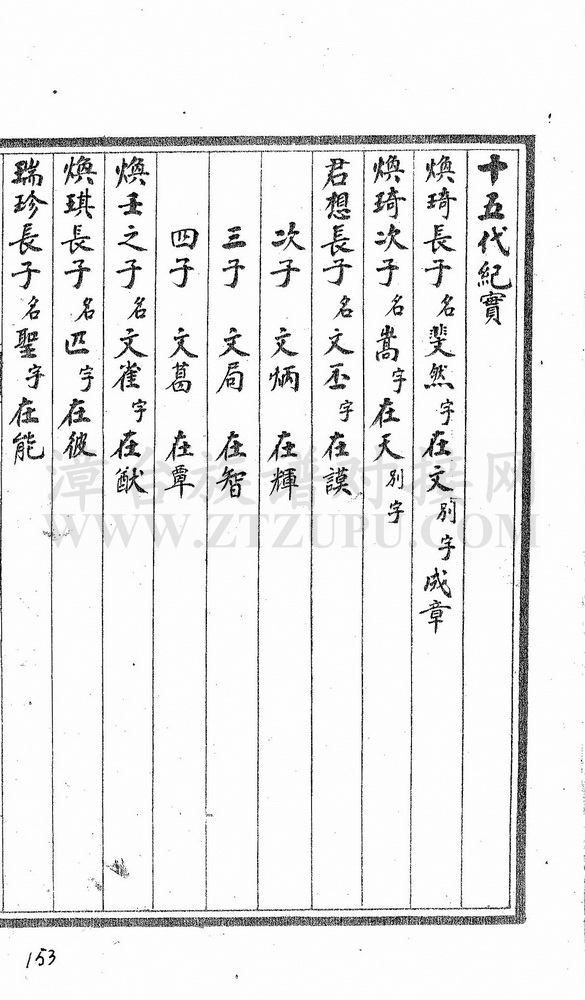 十五代紀實
煥琦長子名斐然字在文別字成章
煥琦次子名嵩字在天別字
君想長子名文丕字在謨
次子 文炳 在輝
三子 文局 在智
四子 文葛 在覃
煥壬之子名文雀字在猷
煥琪長子名匹字在彼
瑞珍長子名聖字在能
漳台族谱对接网
WWW.ZTZUPU.COM
153